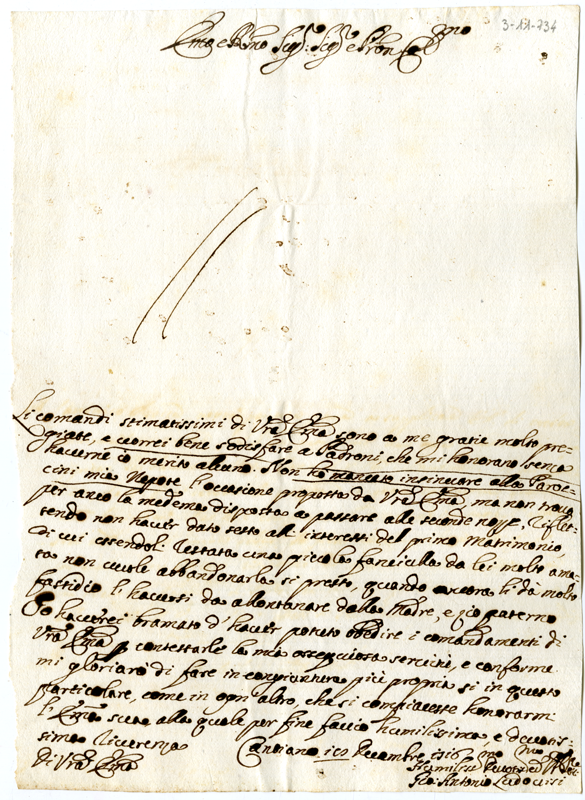 3-11-734
Emo e Rmo Sig.r Sig.r e Pron Colmo
Li comandi stimatissimi di Vra Emza sono a me gratie molto pre-
giate, e vorrei bene sodisfare a Padroni, che mi honorano senza
haverne io merito alcuno. Non ho mancato insinuare alla Paroc-
cini mia Nepote l'occasione proposta da Vra Emza, ma non trova
per anco la medema disposta a passare alle seconde nozze, riflet-
tendo non haver dato sesto all' interessi del primo Matrimonio,
di cui essendoli restata una piccola fanciulla da lei molto ama-
ta non vuole abbandonarla si presto, quando ancora li dà molto
fastidio l' haversi da allontanare dalla Madre, e zio paterno
Io haverei bramato d' haver potuto obedire i comandamenti di
Vra Emza p contestarle la mia ossequiosa servitù, e conforme
mi gloriarò di fare in congiuntura più propria si in questo
particolare, come in ogni altro, che si compiacesse honorarmi
l' Emza sua alla quale per fine faccio humilissima e devotis-
sima riverenza
Di Vra Emza
Cantiano
Decembre
Humiliss
Gio: Antonio Ludovisi